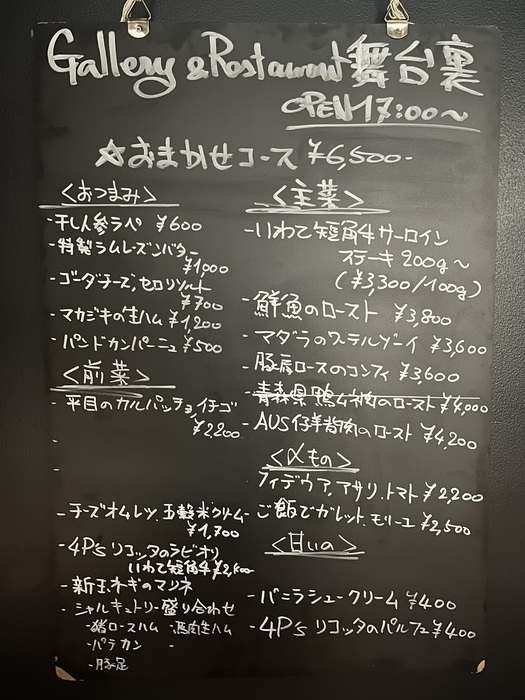 Gallery & Restaurant 舞台裏
OPEN 17:00~
☆おまかせコース ¥6,500-
<おつまみ>
-干し人参ラペ ¥600
-特製ラムレーズンバター
¥1,000
-ゴーダチーズ、セロリソルト
¥700
-マカジキの生ハム ¥1,200
-パンドカンパーニュ ¥500
<前菜>
-平目のカルパッチョ,イチゴ
¥2,200
-
-
-チーズオムレツ、玉蜀米クリーム
¥1,700
-4P's リコッタのラビオリ
いわて短角牛 ¥2,800
-新玉ネギのマリネ
-シャルキュトリー盛り合わせ
-猪ロースハム -馬肉生ハム
-パテカン -
-豚足
<主菜>
-いわて短角牛サーロイン
ステーキ 200g~
(¥3,300/100g)
-鮮魚のロースト ¥3,800
-マダラのワーテルゾーイ ¥3,600
-豚肩ロースのコンフィ ¥3,600
-青森県鴨ムネ肉のロースト ¥4,000
-AUS仔羊背肉のロースト ¥4,200
<〆もの>
-フィデウア,アサリ,トマト ¥2,200
-ご飯でガレット、モリーユ ¥2,500
<甘いの>
-バニラシュークリーム ¥400
-4P's リコッタのパルフェ ¥400